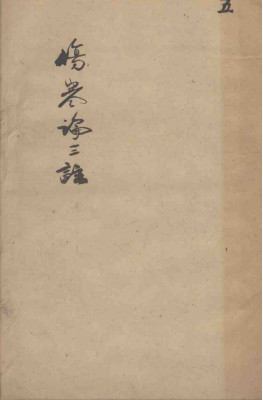 五
傷寒論三註